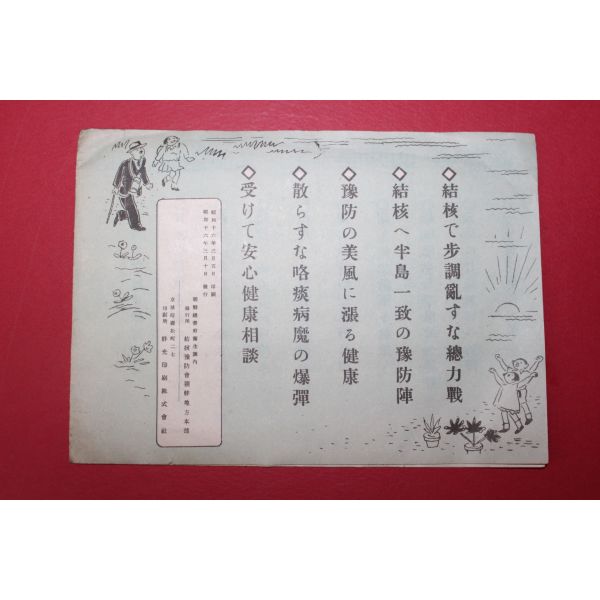 ◇結核で步調亂すな總力戰
◇結核へ半島一致の豫防陣
◇豫防の美風に漲る健康
◇散らすな咯痰病魔の爆彈
◇受けて安心健康相談
昭和十六年三月五日 印刷
昭和十六年三月十日 發行
朝鮮總督府衞生課內
發行所 結核豫防會朝鮮地方本部
印刷所 株式會社